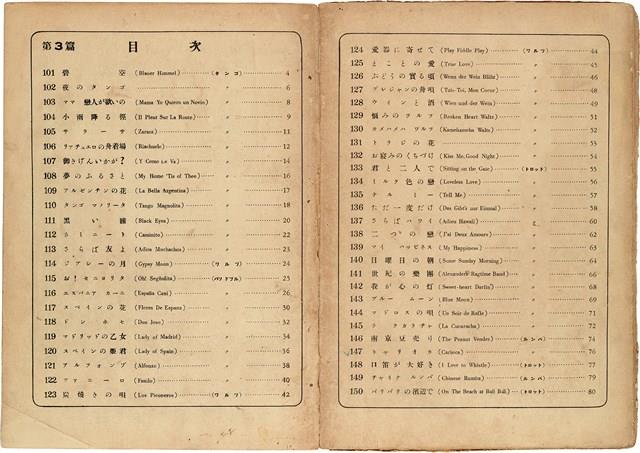 第3篇 目次
101 碧空 (Blauer Himmel) (タンゴ) 4
102 夜のタンゴ 〃 6
103 ママ 戀人が欲いの (Mama Yo Quiero un Novio) 〃 8
104 小雨降る徑 (Il Pleur Sur La Route) 〃 9
105 サリーサ (Zaraza) 〃 11
106 リアチュエロの舟着場 (Riachuelo) 〃 12
107 御きげんいかが? (Y Como Le Va) 〃 14
108 夢のふるさと (My Home 'Tis of Thee) 〃 16
109 アルゼンチンの花 (La Bella Argentina) 〃 17
110 タンゴ マノリータ (Tango Magnolita) 〃 18
111 黒い瞳 (Black Eyes) 〃 20
112 カミニート (Caminito) 〃 22
113 さらば友よ (Adios Muchachos) 〃 23
114 ジプシーの月 (Gypsy Moon) (ワルツ) 24
115 お!セニョリタ (Oh! Segñolita) (パソドブル) 25
116 エスパニア カーニ (España Cani) 〃 26
117 スペインの花 (Flores De Espanz) 〃 30
118 ドンホセ (Don Jose) 〃 32
119 マドリッドの乙女 (Lady of Madrid) 〃 34
120 スペインの姫君 (Lady of Spain) 〃 36
121 アルフォンソ (Alfonso) 〃 38
122 ファニーロ (Fanilo) 〃 40
123 炭焼きの唄 (Los Piconeros) (ワルツ) 42
124 愛器に寄せて (Play Fiddle Play) (ワルツ) 44
125 とことの愛 (True Love) 〃 45
126 ぶどうの實る頃 (Wenn der Wein Blüht) 〃 46
127 ブレジャンの舟唄 (Tais-Toi, Mon Coeur) 〃 48
128 ウインと酒 (Wien und der Wein) 〃 49
129 惱みのワルツ (Broken Heart Waltz) 〃 51
130 カメハメハ ワルツ (Kamehameha Waltz) 〃 52
131 トリジの花 〃 53
132 お寢みのくちづけ (Kiss Me, Good Night) 〃 54
133 君と二人で (Sitting on the Gate) (トロット) 55
134 ミルク色の戀 (Loveless Love) 〃 56
135 テルミー (Tell Me) 〃 57
136 ただ一度だけ (Das Gibt's nur Einmal) 〃 58
137 さらばハワイ (Adieu Hawaii) 〃 60
138 二つの戀 (J'ai Deux Amours) 〃 62
139 マイ ハッピネス (My Happiness) 〃 63
140 日曜日の朝 (Some Sunday Morning) 〃 64
141 世紀の樂團 (Alexander's Ragtime Band) 〃 66
142 我が心の灯 (Sweet-heart Darlin') 〃 68
143 ブルー ムーン (Blue Moon) 〃 69
144 マドロスの唄 (Un Soir de Rafle) 〃 71
145 ラ クカラチャ (La Cucaracha) 〃 72
146 南京豆売り (The Peanut Vender) (ルンバ) 74
147 キャリオカ (Carioca) 〃 76
148 口笛が大好き (I Love to Whistle) (トロット) 77
149 チャイナ ルンバ (Chinese Rumba) (ルンバ) 79
150 バリバリの濱辺で (On The Beach at Bali Bali) (トロット) 80